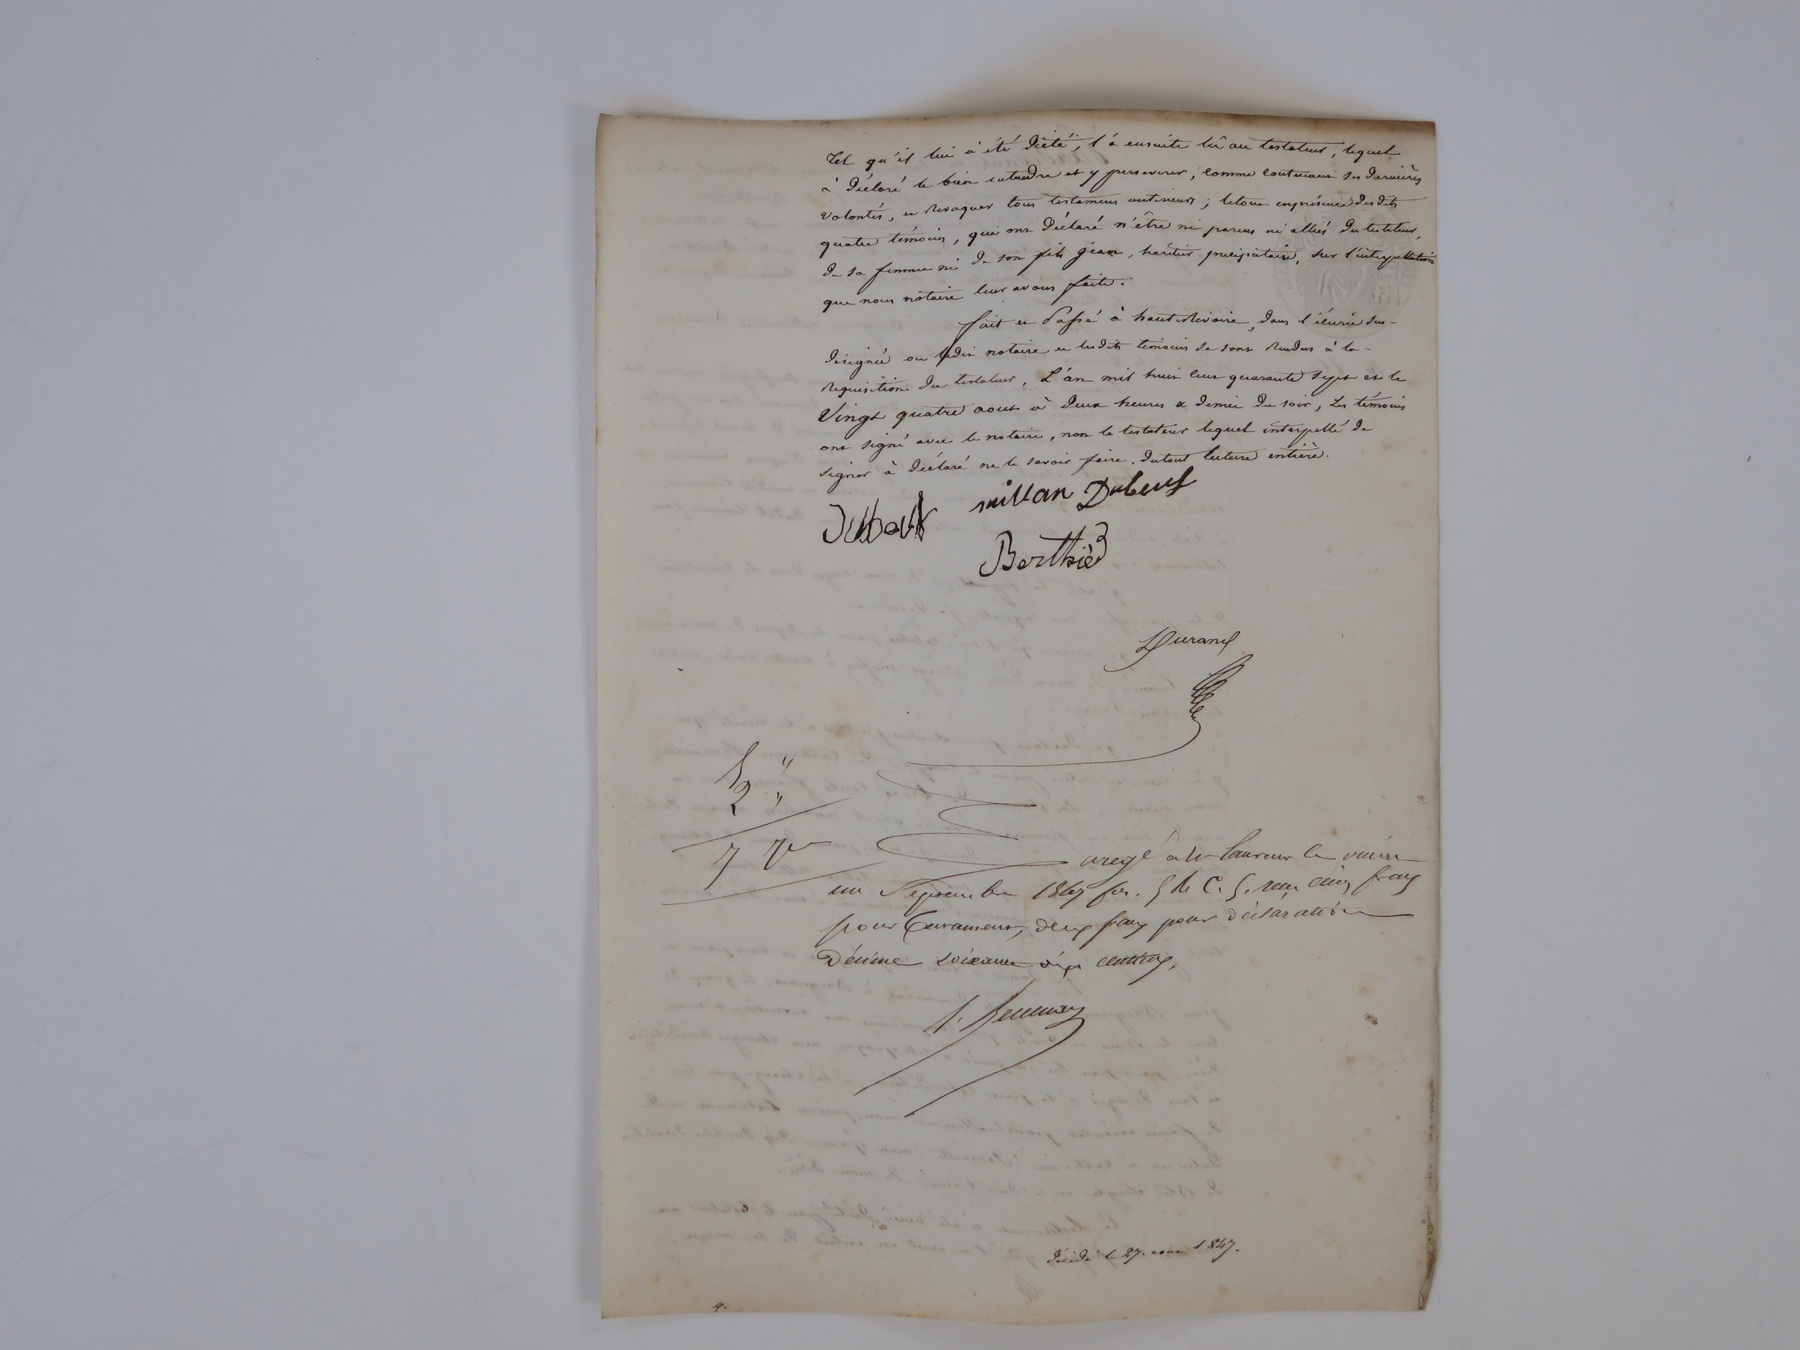 Tel qu'il lui à été dicté, l'à ensuite lû au testateur, lequel
à déclaré le bien entendre et y perseverer, comme contenant ses dernières
volontés, et revoquer tous testamens antérieurs ; letout enprésence desdits
quatre témoins, qui ont déclaré n'être ni parens ni alliés du testateur,
de sa femme ni de son fils jean, héritier précipiataire, sur l'interpellation
que nous notaire leur avons faite.
fait et Passé à hauterivoire, dans l'écurie sus-
designée ou ledit notaire et lesdits témoins se sont rendus à la
requisition du testateur, L'an mil huit cent quarante sept et le
Vingt quatre aout à deux heures & demie du soir, Les témoins
ont signé avec le notaire, non le testateur lequel interpellé de
signer à déclaré ne le savoir faire, dutout lecture entière.
Dubeuf
Berthié
Durand
5 "
2 "
7 70
le
un Septembre 1847 fo. 5 R C. 5. reçu cinq francs
pour testament, deux francs pour déclaration
Décime soixante dix centimes.
décédé le 27. aout 1847.
4.